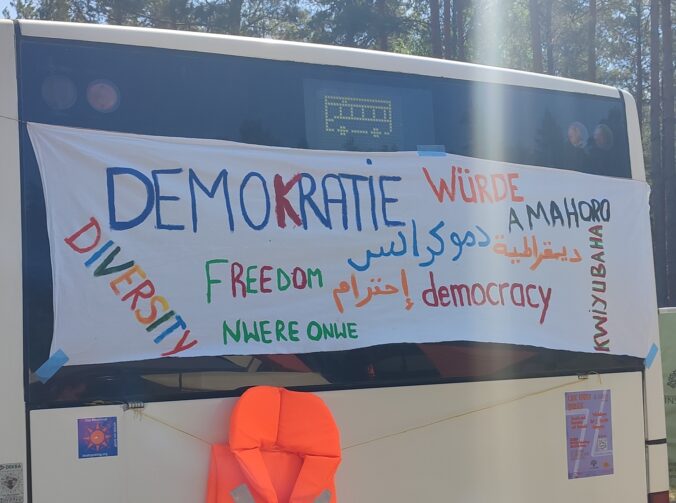 DEMOKRATİE
WÜRDE
AMAHORO
DIVERSITY
دموكراسي
ديمقراطية
KWIYUBAHA
FREEDOM
إحترام
democracy
NWERE ONWE
DEKRA